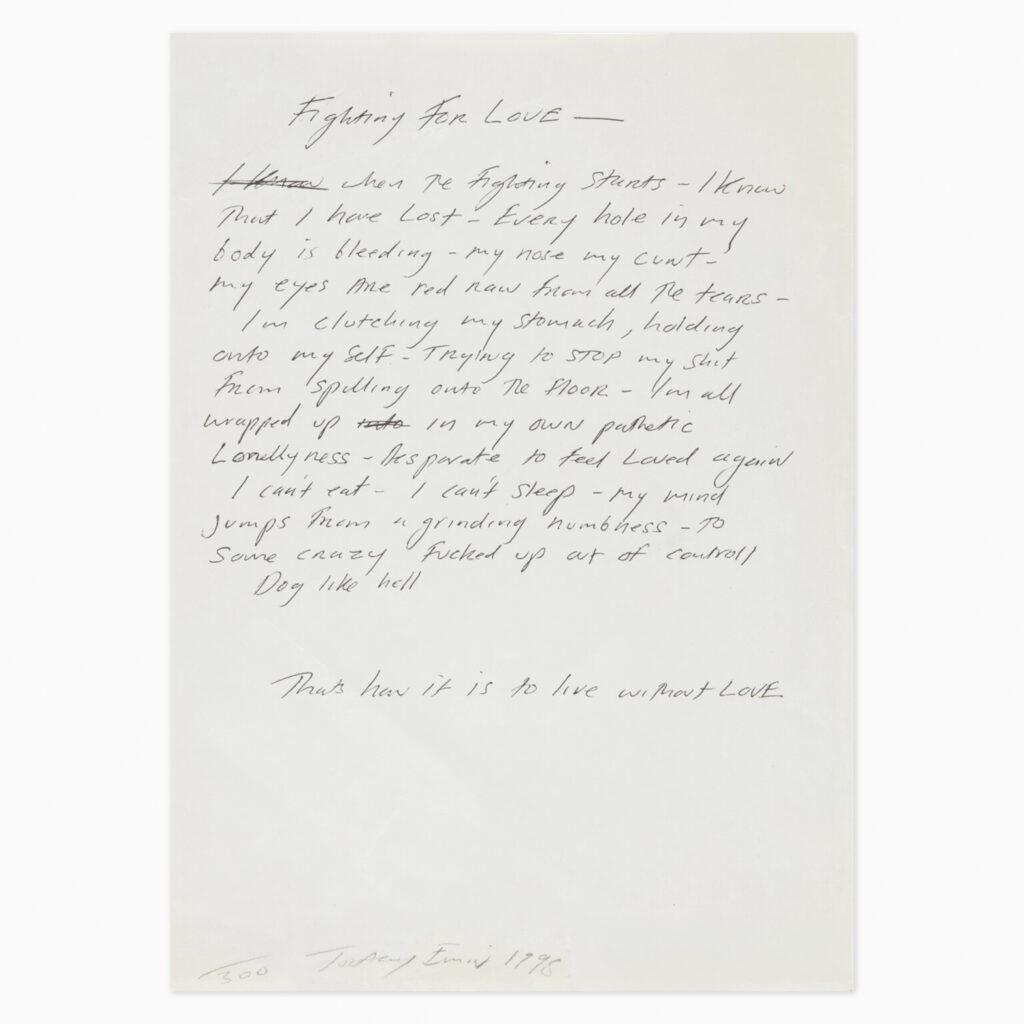 Fighting For LOVE —
I Know when The Fighting Starts - I Know
That I have Lost - Every hole in my
body is bleeding - my nose my cunt -
my eyes Are red raw from all The tears -
I'm clutching my stomach, holding
onto my Self - Trying to STOP my shit
From spilling onto The Floor - I'm all
wrapped up into in my own pathetic
Lonellyness - Desparate to feel Loved again
I can't eat - I can't sleep - my mind
jumps from a grinding numbness - TO
Some crazy Fucked up out of controll
Dog like hell
Thats how it is to live without LOVE
/300 Tracey Emin 1998